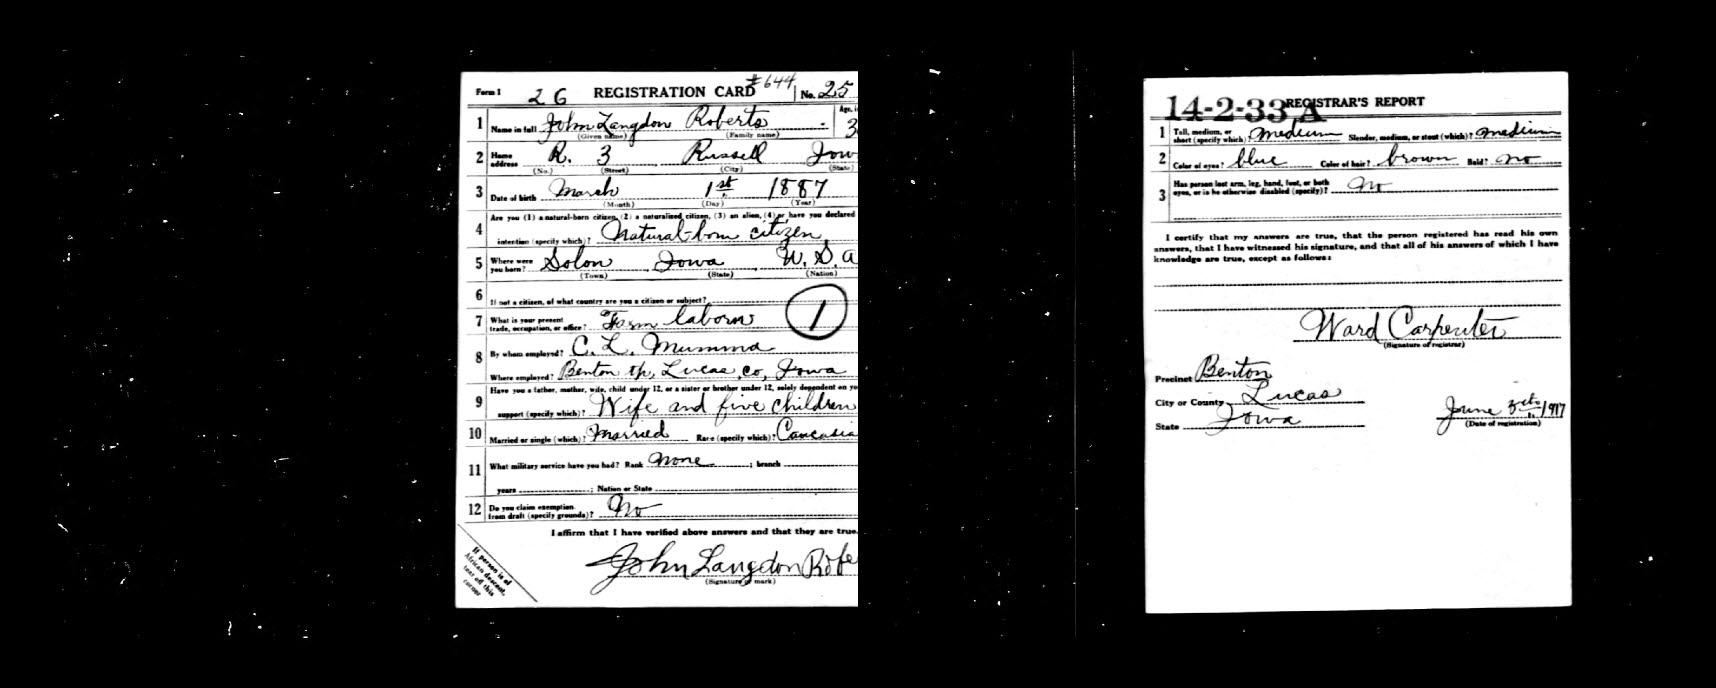 #644
Form 1 26 REGISTRATION CARD No. 25
1 Name in full John Langdon Roberts Age, i 3
(Given name) (Family name)
2 Home address R. 3 Russell Iow
(No.) (Street) (City) (State)
3 Date of birth March 1st 1887
(Month) (Day) (Year)
4 Are you (1) a natural-born citizen, (2) a naturalized citizen, (3) an alien, (4) or have you declared
intention (specify which)? Natural-born citizen
5 Where were you born? Solon Iowa U. S. A
(Town) (State) (Nation)
6 If not a citizen, of what country are you a citizen or subject?
7 What is your present trade, occupation, or office? Farm laborer 1
8 By whom employed? C. L. Mumma
Where employed? Benton tp, Lucas, co, Iowa
9 Have you a father, mother, wife, child under 12, or a sister or brother under 12, solely dependent on yo
support (specify which)? Wife and five children
10 Married or single (which)? Married Race (specify which)? Caucasia
11 What military service have you had? Rank None ; branch
years ; Nation or State
12 Do you claim exemption from draft (specify grounds)? No
I affirm that I have verified above answers and that they are true.
John Langdon Robe
(Signature or mark)
If person is of
African descent,
tear off this
corner
14-2-33 A REGISTRAR'S REPORT
1 Tall, medium, or short (specify which)? medium Slender, medium, or stout (which)? medium
2 Color of eyes? blue Color of hair? brown Bald? no
3 Has person lost arm, leg, hand, foot, or both eyes, or is he otherwise disabled (specify)? No
I certify that my answers are true, that the person registered has read his own
answers, that I have witnessed his signature, and that all of his answers of which I have
knowledge are true, except as follows:
Ward Carpenter
(Signature of registrar)
Precinct Benton
City or County Lucas
State Iowa
June 1917
(Date of registration)